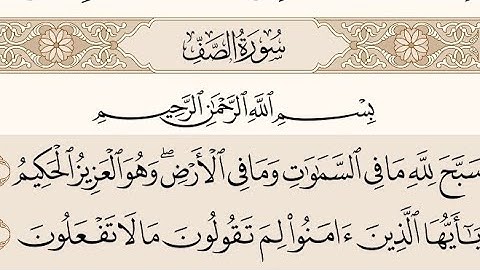 سُورَةُ الصَّفِّ
بِسْمِ اللَّهِ الرَّحْمَٰنِ الرَّحِيمِ
سَبَّحَ لِلَّهِ مَا فِي السَّمَٰوَٰتِ وَمَا فِي الْأَرْضِ ۖ وَهُوَ الْعَزِيزُ الْحَكِيمُ
يَٰٓأَيُّهَا الَّذِينَ ءَامَنُوا۟ لِمَ تَقُولُونَ مَا لَا تَفْعَلُونَ